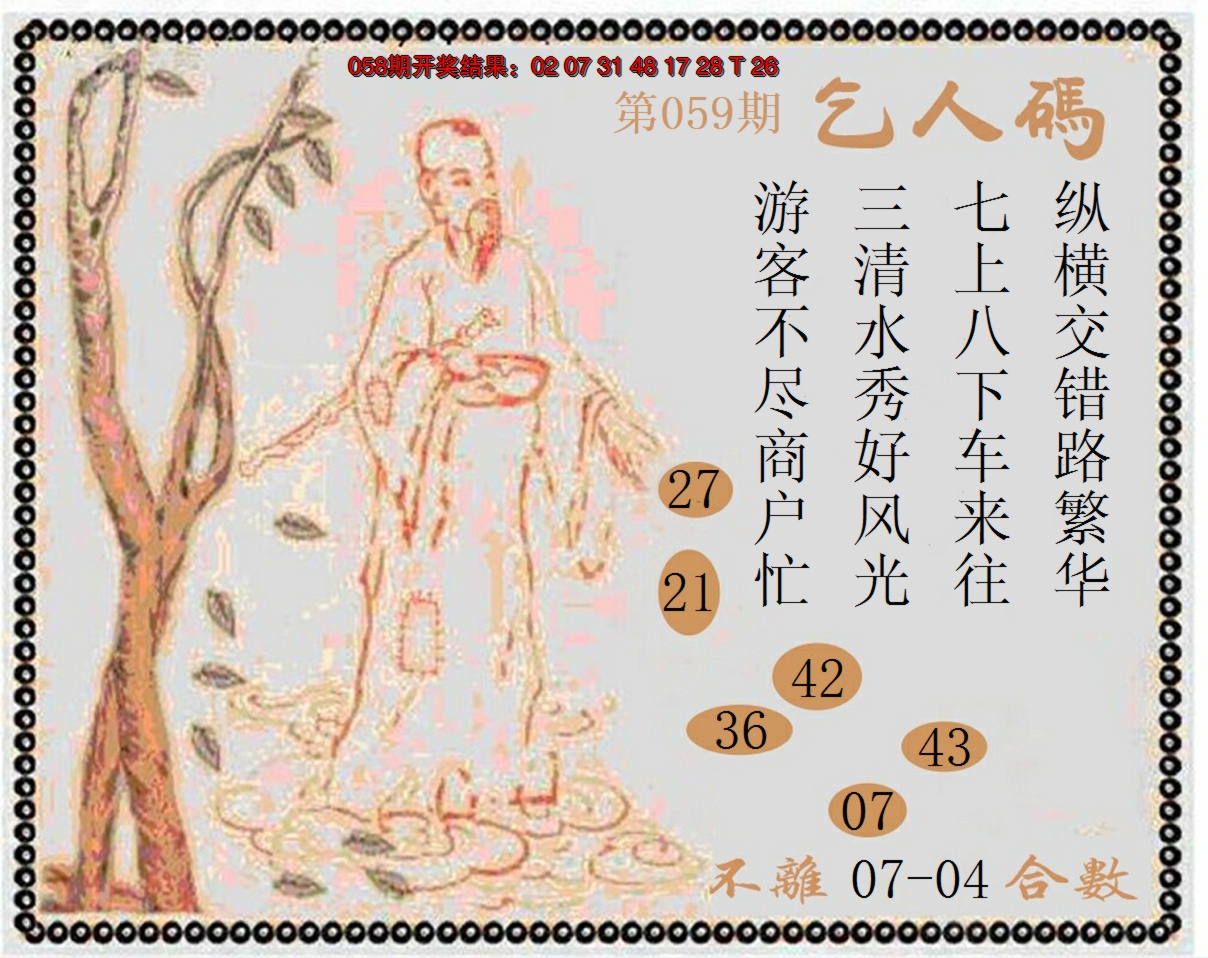 058期开奖结果：02 07 31 48 17 28 T 26
第059期
乞人碼
纵横交错路繁华
七上八下车来往
三清水秀好风光
游客不尽商户忙
27
21
42
36
43
07
不離 07-04 合數